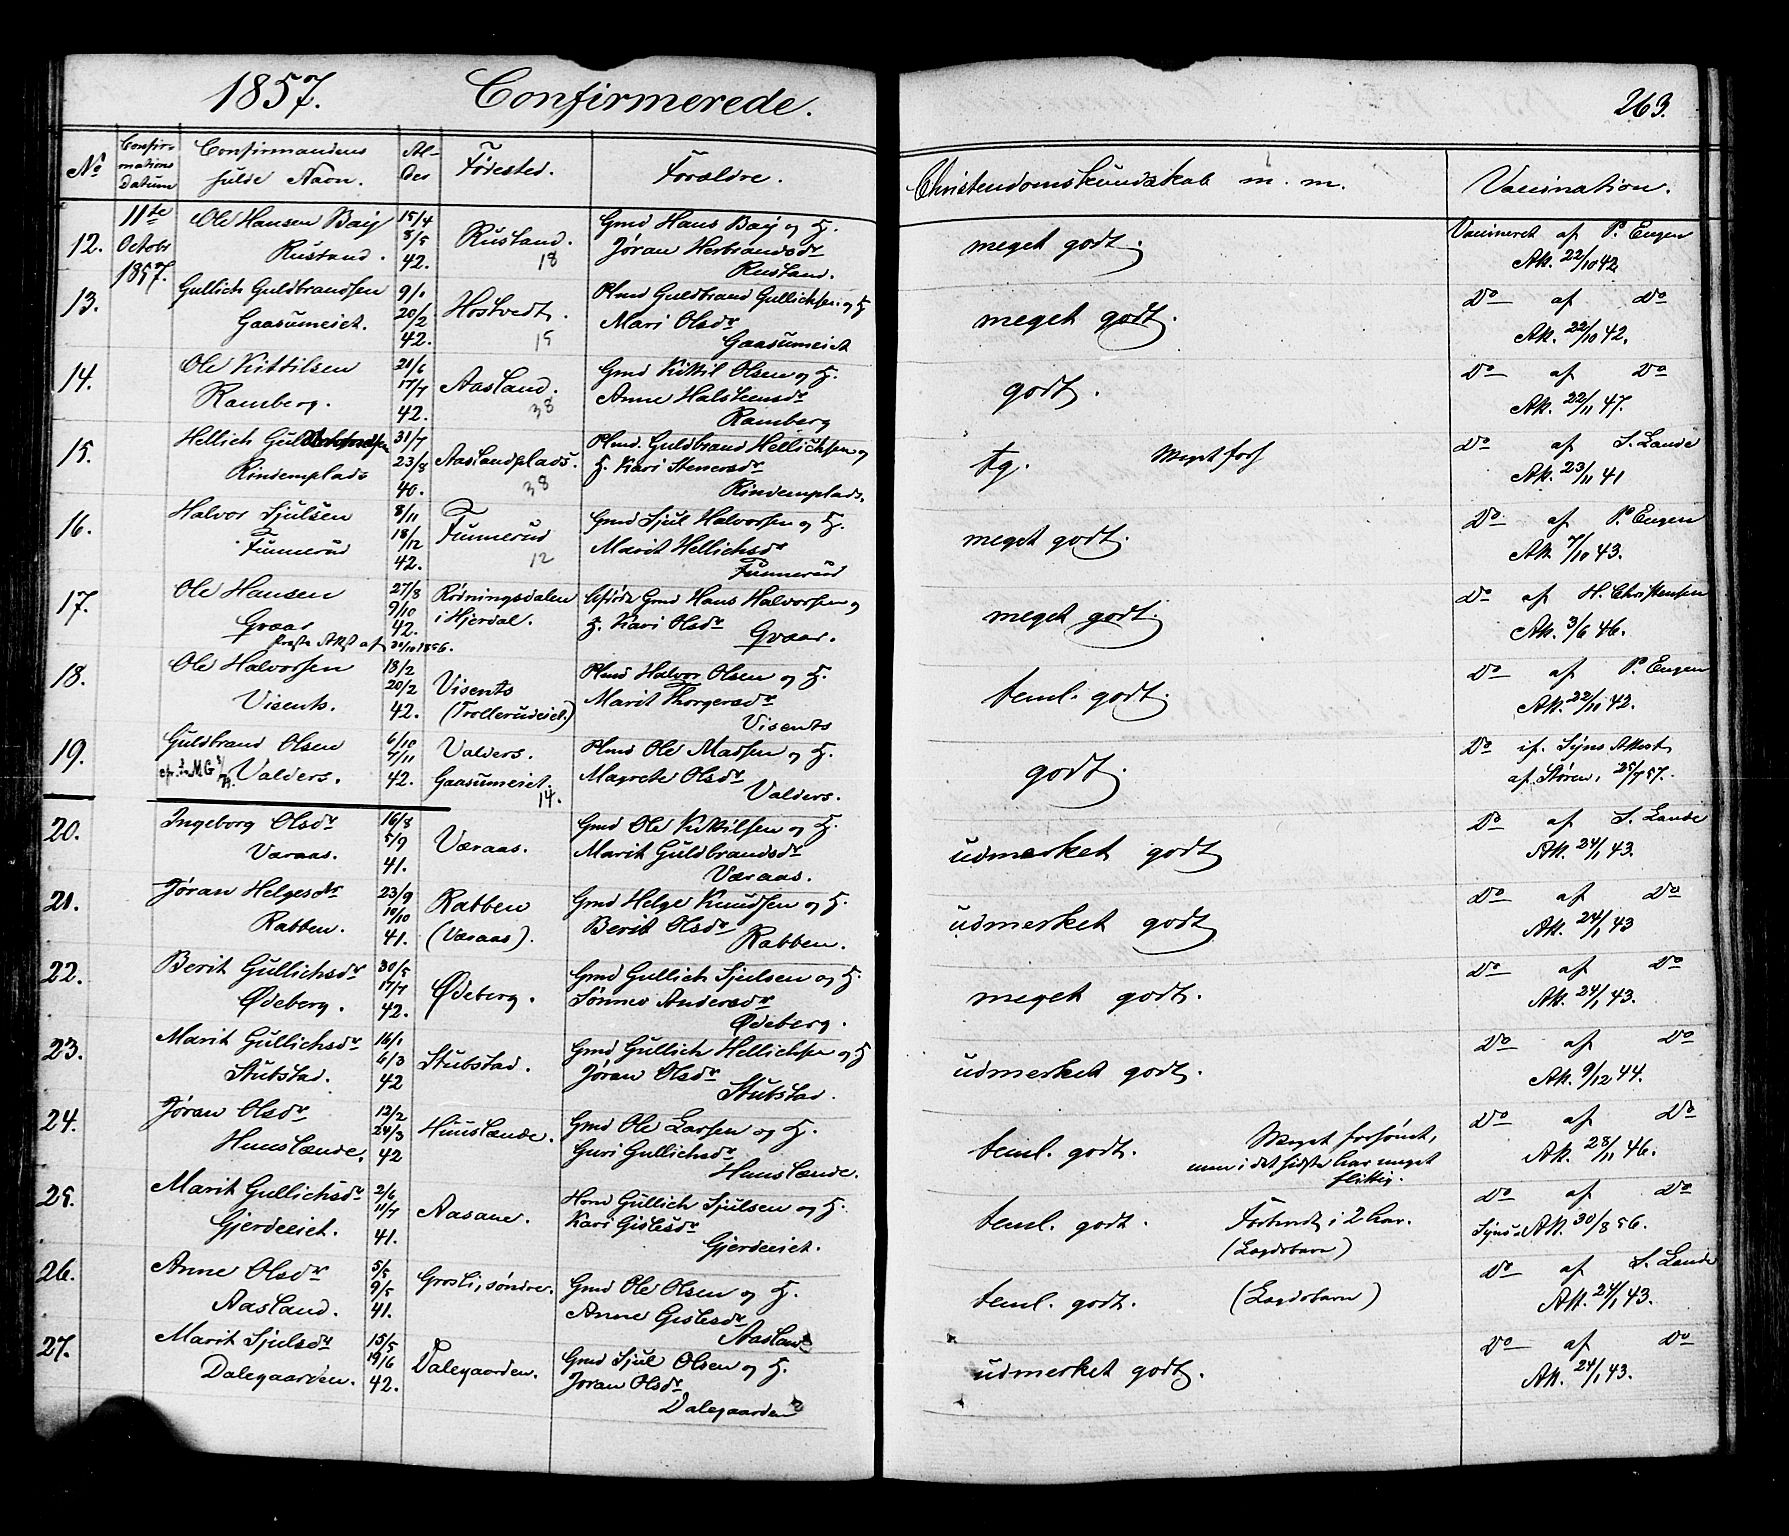 1857. Confirmerede.
263.
No
Confir-
mations
Datum
Confirmandens
fulde Navn.
Al-
der
Fødested.
Forældre.
Christendomskundskab m. m.
Vaccination.
12.
11te
Octobr
1857.
Ole Hansen Baij
Rustand.
15/4
8/5
42.
Rustand.
18
Gmd Hans Baij og H.
Jøran Herbrandsdr
Rustand.
meget godt.
Vaccineret af P. Engen
Att. 22/10 42.
13.
Gullich Guldbrandsen
Gaasumeiet.
9/1
20/2
42.
Hostvedt.
15
Plmd Guldbrand Gullichsen og H
Mari Olsdr
Gaasumeiet
meget godt.
Do af Do
Att. 22/10 42.
14.
Ole Kittilsen
Ramberg.
21/6
17/7
42.
Aasland.
38
Gmd Kittil Olsen og H.
Anne Halsteensdr
Ramberg
godt.
Do af Do
Att. 22/11 47.
15.
Hellich Guldbrandsen
Rindemplads
31/7
23/8
40.
Aaslandplads.
38
Plmd. Guldbrand Hellichsen og
H. Kari Stenersdr
Rindemplads.
tg. Meget fors
Do af S. Lande
Att. 23/11 41
16.
Halvor Sjulsen
Funnerud
8/11
18/12
42.
Funnerud
12
Gmd Sjul Halvorsen og H.
Marit Hellichsdr
Funnerud
meget godt.
Do af P. Engen
Att. 7/10 43.
17.
Ole Hansen
Qvaar
Præste Attst af 30/10 1856.
27/8
9/10
42.
Rödningsdalen
i Hjerdal.
Gmd Hans Halvorsen og
H. Kari Olsdr Qvaar.
meget godt.
Do af H. Christensen
Att. 3/6 46.
18.
Ole Halvorsen
Visents.
18/2
20/2
42.
Visents
(Trollerudeiet.)
Plmd Halvor Olsen og H.
Marit Thorgersdr
Visents
teml. godt.
Do af P. Engen
Att. 22/10 42.
19.
Guldbrand Olsen
Valders.
6/10
7/11
42.
Valders.
Gaasumeiet.
14.
Plmd Ole Madsen og H.
Magrete Olsdr
Valders.
godt.
Do if. Syns Attest
af Støren, 25/7 57.
20.
Ingeborg Olsdr
Væraas.
16/8
5/9
41.
Væraas.
Gmd Ole Kittilsen og H.
Marit Guldbrandsdr
Væraas.
udmerket godt
Do af S. Lande
Att. 24/1 43.
21.
Jøran Helgesdr
Rabben.
23/9
10/10
41.
Rabben
(Væraas).
Gmd Helge Knudsen og H.
Berit Olsdr
Rabben.
udmerket godt
Do af Do
Att. 24/1 43
22.
Berit Gullichsdr
Ødeberg.
30/5
17/7
42.
Ødeberg.
Gmd Gullich Sjulsen og H.
Sønnev Andersdr
Ødeberg.
meget godt.
Do af Do
Att. 24/1 43.
23.
Marit Gullichsdr
Stubstad.
16/1
6/3
42
Stubstad.
Gmd Gullich Hellichsen og H
Jøran Olsdr
Stubstad.
udmerket godt.
Do af Do
Att. 9/12 44.
24.
Jøran Olsdr
Huuslænde.
12/2
24/3
42
Huuslænde.
Gmd Ole Larsen og H.
Guri Gullichsdr
Huuslænde.
teml. godt.
Meget forsömt,
men i det sidste har meget
flittig.
Do af Do
Att. 28/11 46.
25.
Marit Gullichsdr
Gjerdeeiet.
2/6
11/7
41.
Aasane.
Hmd Gullich Sjulsen og H.
Kari Gislesdr
Gjerdeeiet.
teml. godt. Forbudt i 2 Aar.
(Lægdsbarn)
Do af Do
Att. 30/8 56.
26.
Anne Olsdr
Aasland.
5/5
9/5
41.
Grosli, søndre.
Gmd Ole Olsen og H.
Anne Gislesdr
Aasland
teml. godt. (Lægdsbarn)
Do af S. Lande
Att. 24/1 43.
27.
Marit Sjulsdr
Dalegaarden.
15/5
19/6
42.
Dalegaarden.
Gmd Sjul Olsen og H.
Jøran Olsdr
Dalegaarden
udmerket godt.
Do af Do
Att. 24/1 43.